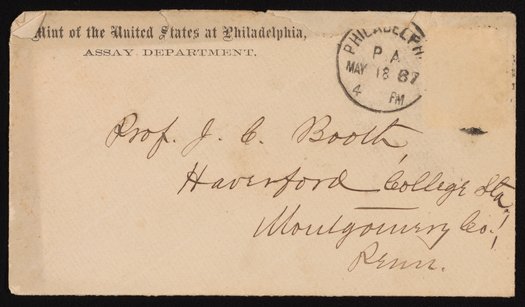 Mint of the United States at Philadelphia,
ASSAY DEPARTMENT.
PHILADELPH
PA
MAY 18 87
4 PM
Prof. J. C. Booth,
Haverford College Sta.,
Montgomery Co.,
Penn.